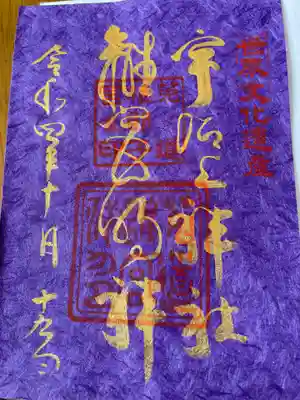 世界文化遺産
宇治上神社
離宮大明神
令和四年十月